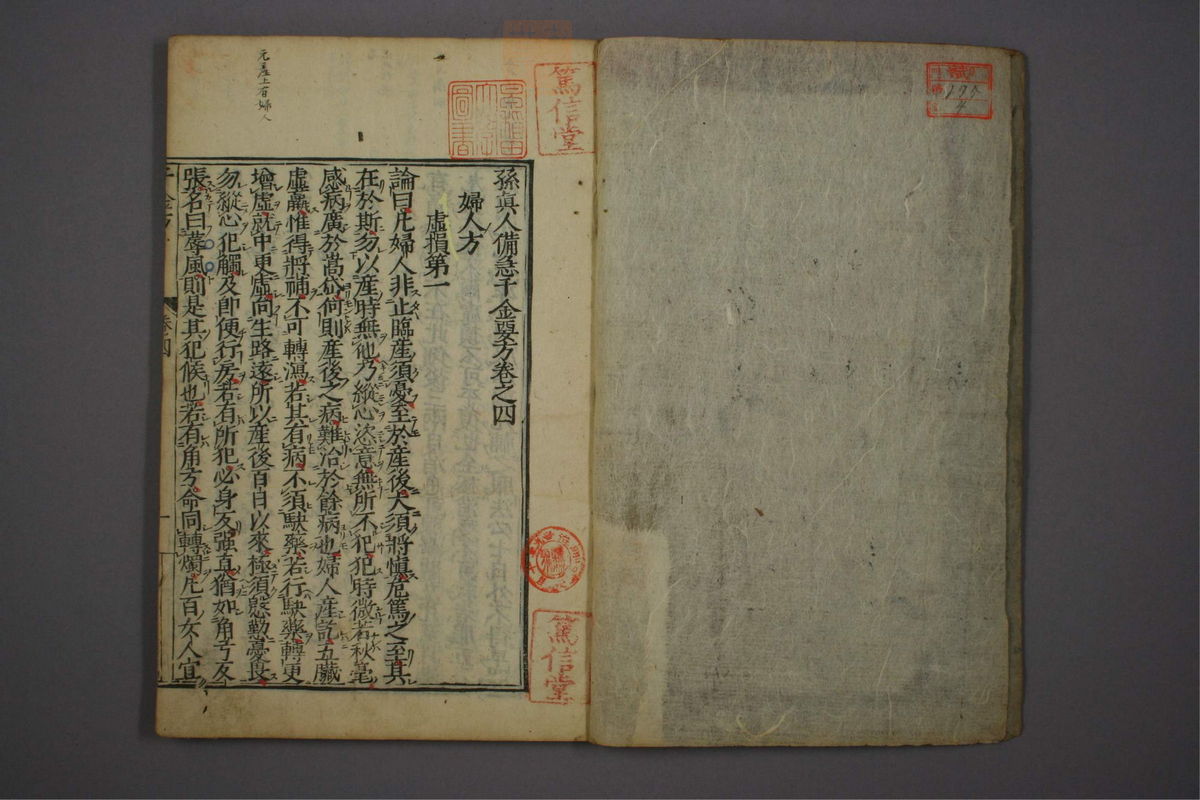 孫眞人備急千金要方卷之四
婦人方
虛損第一
論曰凡婦人非止臨産須憂至於産後大須將愼危篤之至其
在於斯勿以産時無他乃縱心恣意無所不犯犯時微若秋毫
感病廣於嵩岱何則産後之病難治於餘病也婦人産訖五臟
虛羸惟得將補不可轉瀉若其有病不須駃藥若行駃藥轉更
增虛就中更虛向生路遠所以産後百日以來極須慇懃憂畏
勿縱心犯觸及即便行房若有所犯必身反強直猶如角弓反
張名曰蓐風則是其犯候也若有角方命同轉燭凡百女人宜
篤信堂
圖書
篤信堂